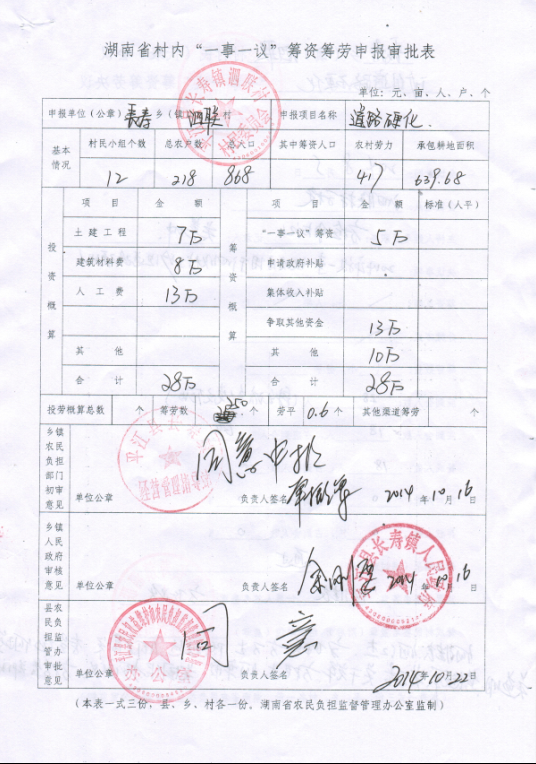 湖南省村内“一事一议”筹资筹劳申报审批表
单位：元、亩、人、户、个
申报单位（公章）长寿乡（镇）泗联村 申报项目名称 道路硬化.
基本情况 村民小组个数 总农户数 总人口 其中筹资人口 农村劳力 承包耕地面积
12 218 868 417 639.68
投资概算 项目 金额 筹资概算 项目 金额 标准（人平）
土建工程 7万 “一事一议”筹资 5万
建筑材料费 8万 申请政府补贴
人工费 13万 集体收入补贴
争取其他资金 13万
其他 其他 10万
合计 28万 合计 28万
投劳概算总数 个 筹劳数 250 个 劳平 0.6个 其他渠道筹劳 个
乡镇农民负担部门初审意见 同意申报
单位公章 负责人签名 2014年10月16日
乡镇人民政府审核意见
单位公章 负责人签名 2014年10月16日
县农民负担监管办审批意见 同意
单位公章 2014年10月22日
（本表一式三份，县、乡、村各一份，湖南省农民负担监督管理办公室监制）